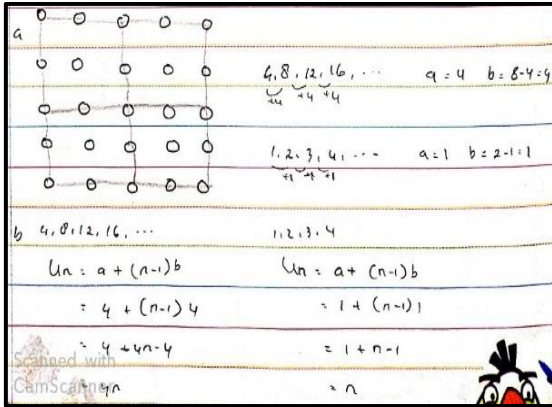 a
4, 8, 12, 16, ... a = 4 b = 8-4 = 4
+4 +4 +4
1, 2, 3, 4, ... a = 1 b = 2-1 = 1
+1 +1 +1
b 4, 8, 12, 16, ... 1, 2, 3, 4
Un = a + (n-1) b Un = a + (n-1) b
= 4 + (n-1) 4 = 1 + (n-1) 1
= 4 + 4n - 4 = 1 + n - 1
= 4n = n
Scanned with
CamScanner